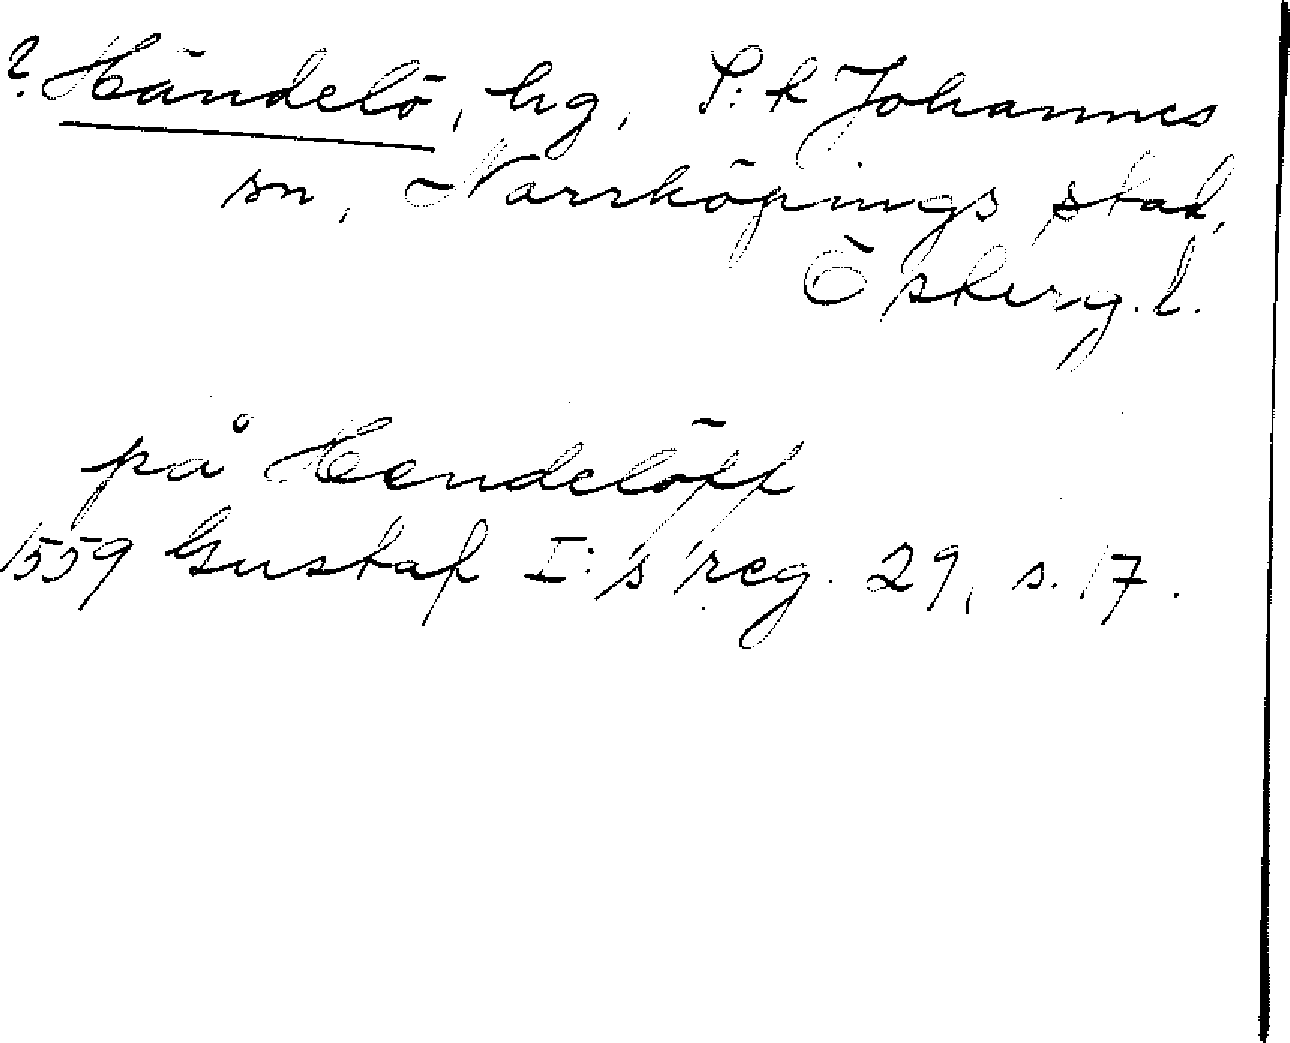 ? Händelö, hg, S:t Johannes
sn, Norrköpings stad,
Österg.l.
på Hendelöff
1559 Gustaf I:s reg. 29, s. 17.